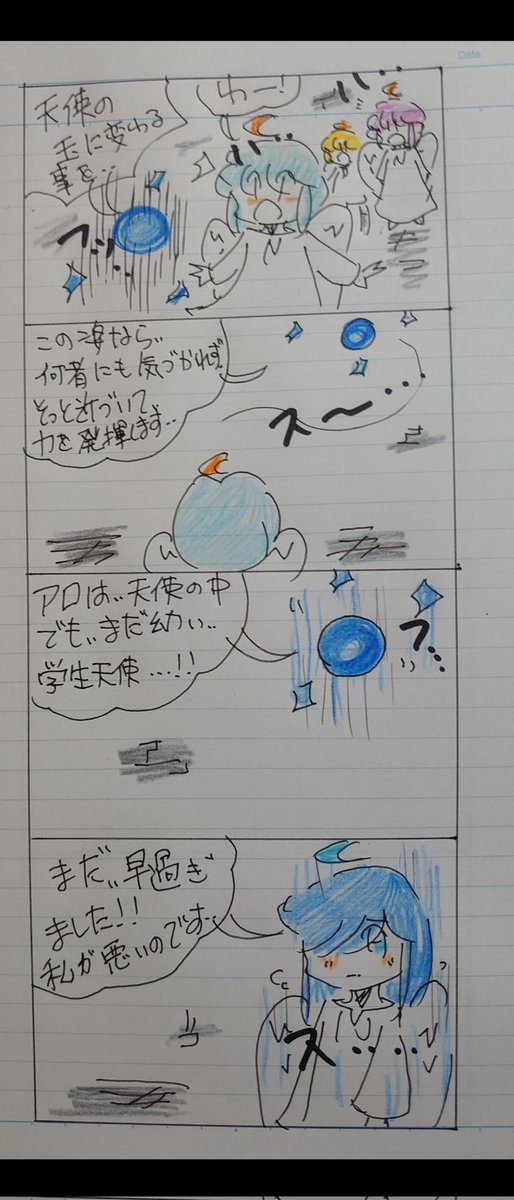 Data
わー!
天使の
玉に変わる
事を…
フッ…
この姿なら、
何者にも気づかれず
そっと近づいて、
力を発揮します…
ス〜…
アロは、、天使の中
でも、、まだ幼い、、
学生天使…!!
フ…
まだ、、早過ぎ
ました!!
私が悪いのです…
ス…